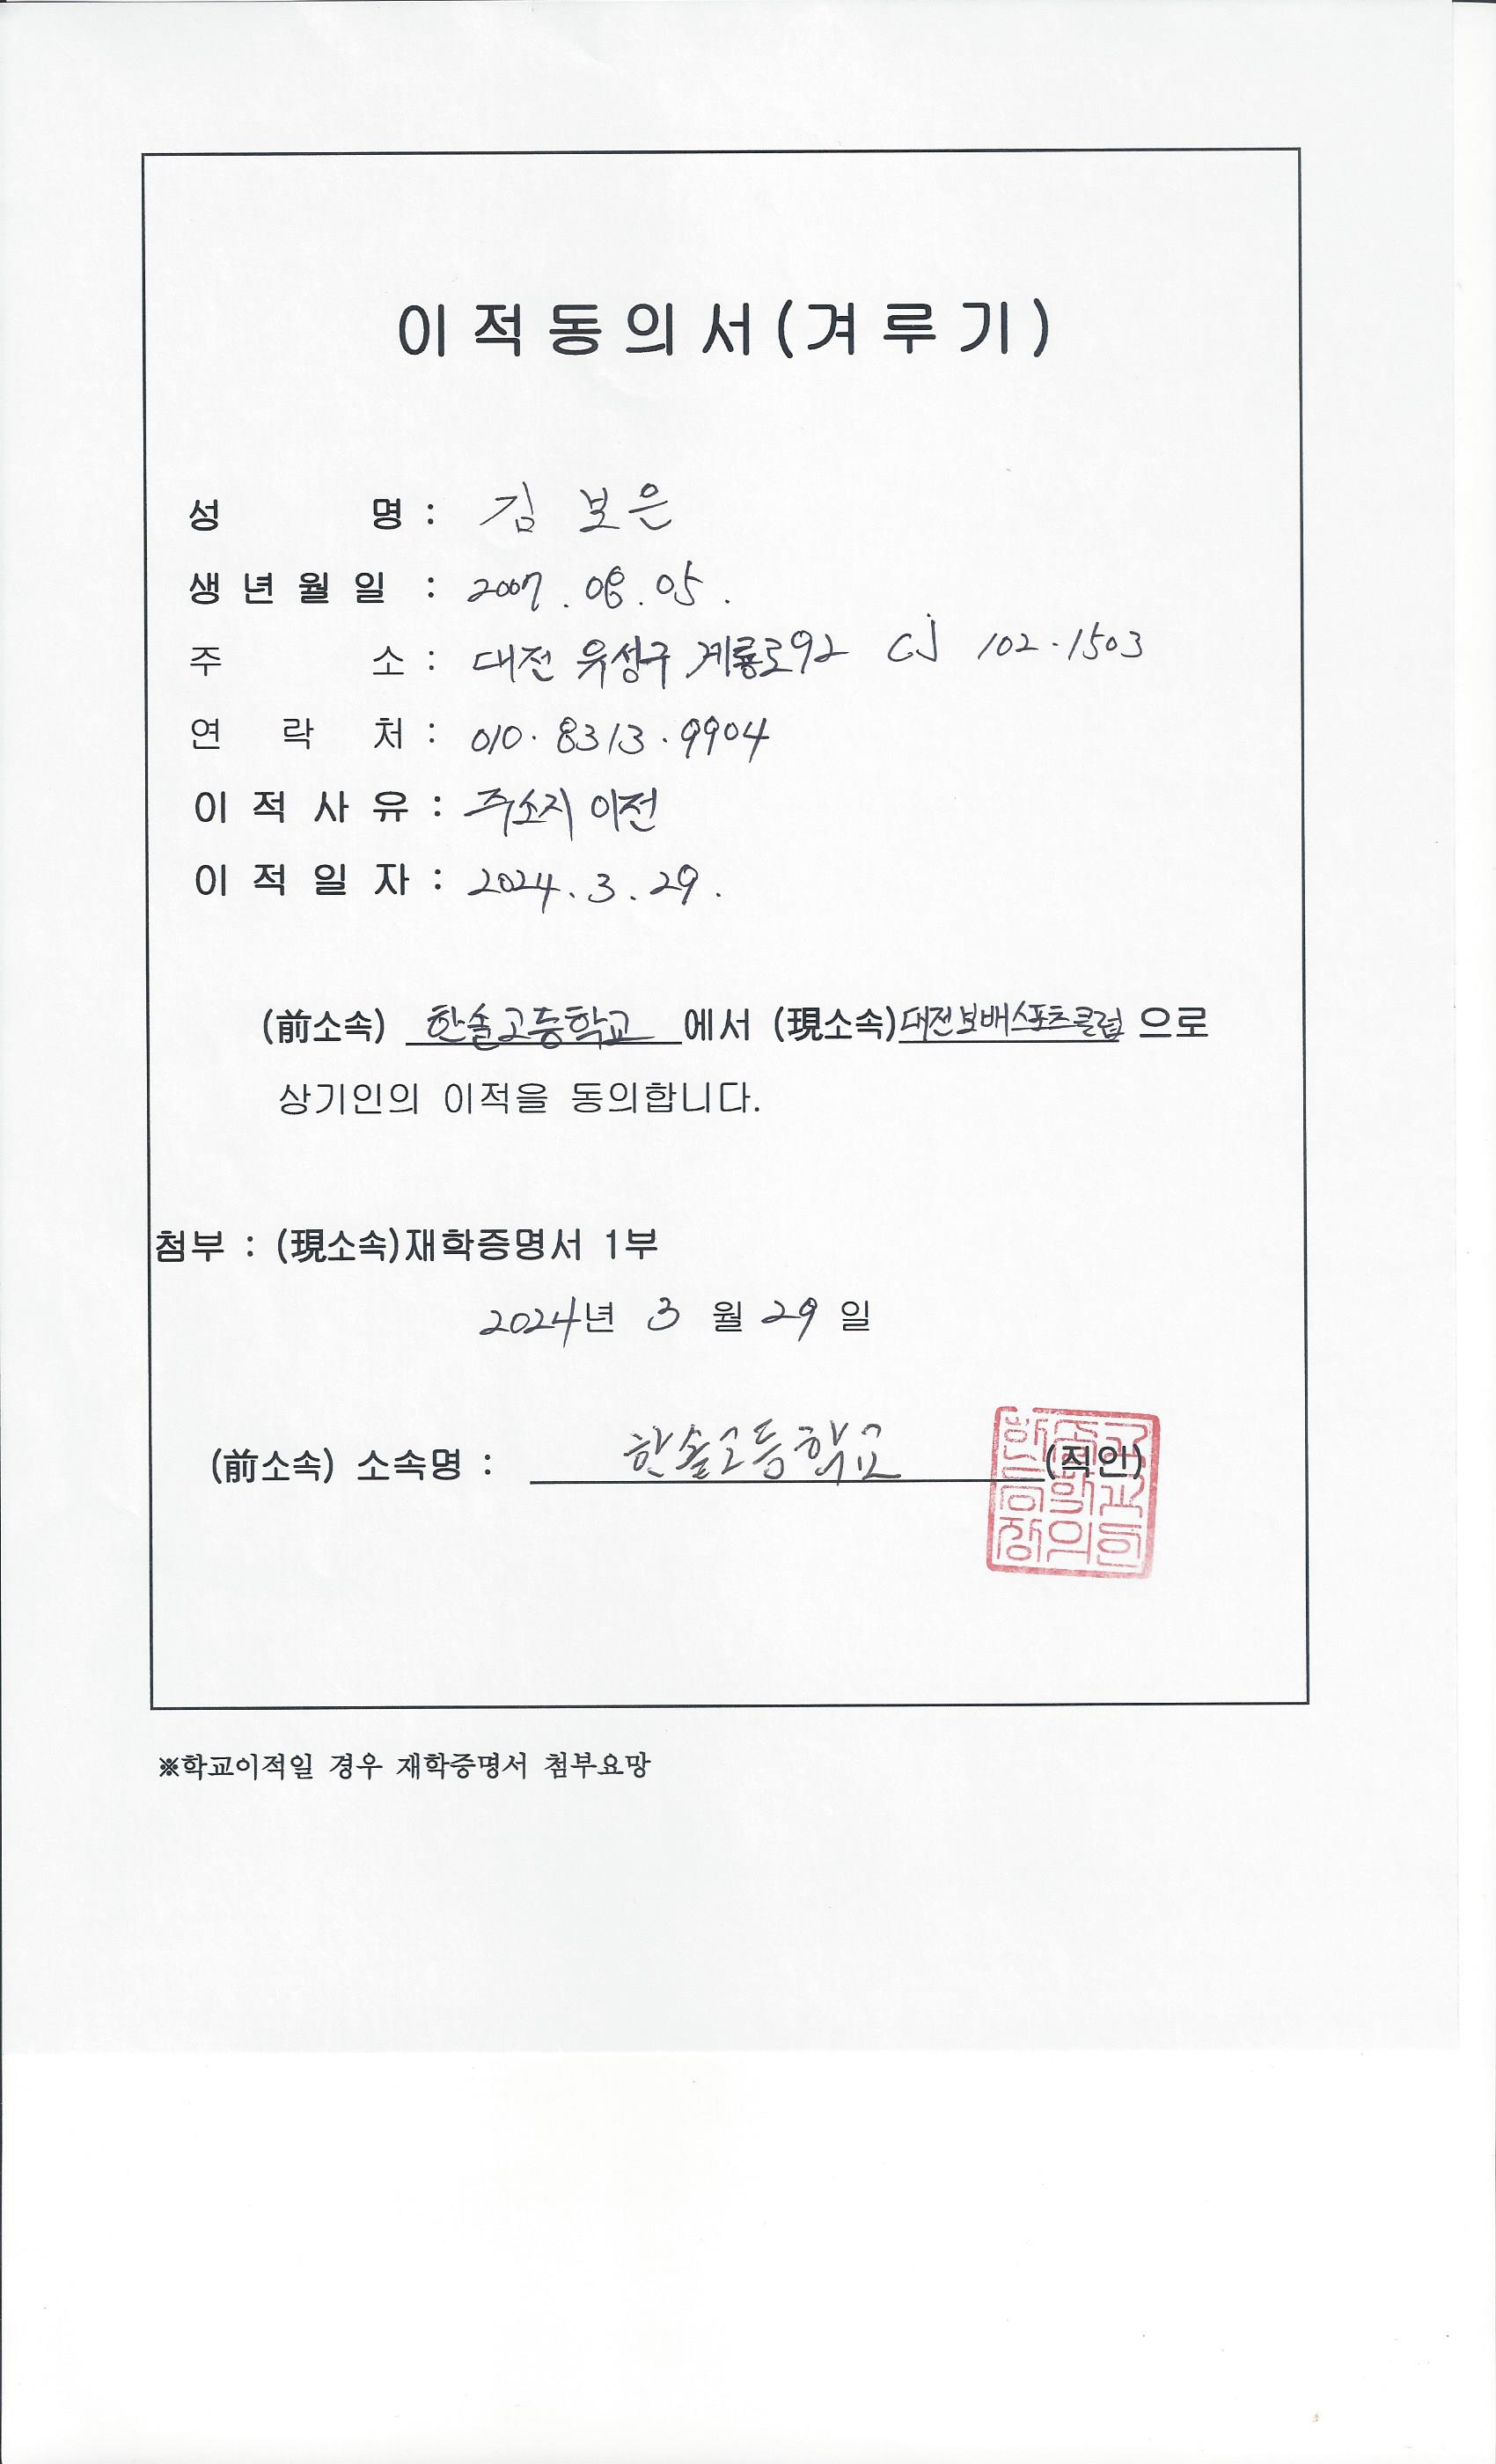 이적동의서(겨루기)
성 명 : 김 보 은
생년월일 : 2007. 08. 05.
주 소 : 대전 유성구 계룡로92 CJ 102-1503
연 락 처 : 010. 8313. 9904
이적사유 : 주소지 이전
이적일자 : 2024. 3. 29.
(前소속) 한솔고등학교 에서 (現소속)대전보배스포츠클럽 으로
상기인의 이적을 동의합니다.
첨부 : (現소속)재학증명서 1부
2024년 3 월 29 일
(前소속) 소속명 : 한솔고등학교 (직인)
한솔고
등학교
장의인
※학교이적일 경우 재학증명서 첨부요망